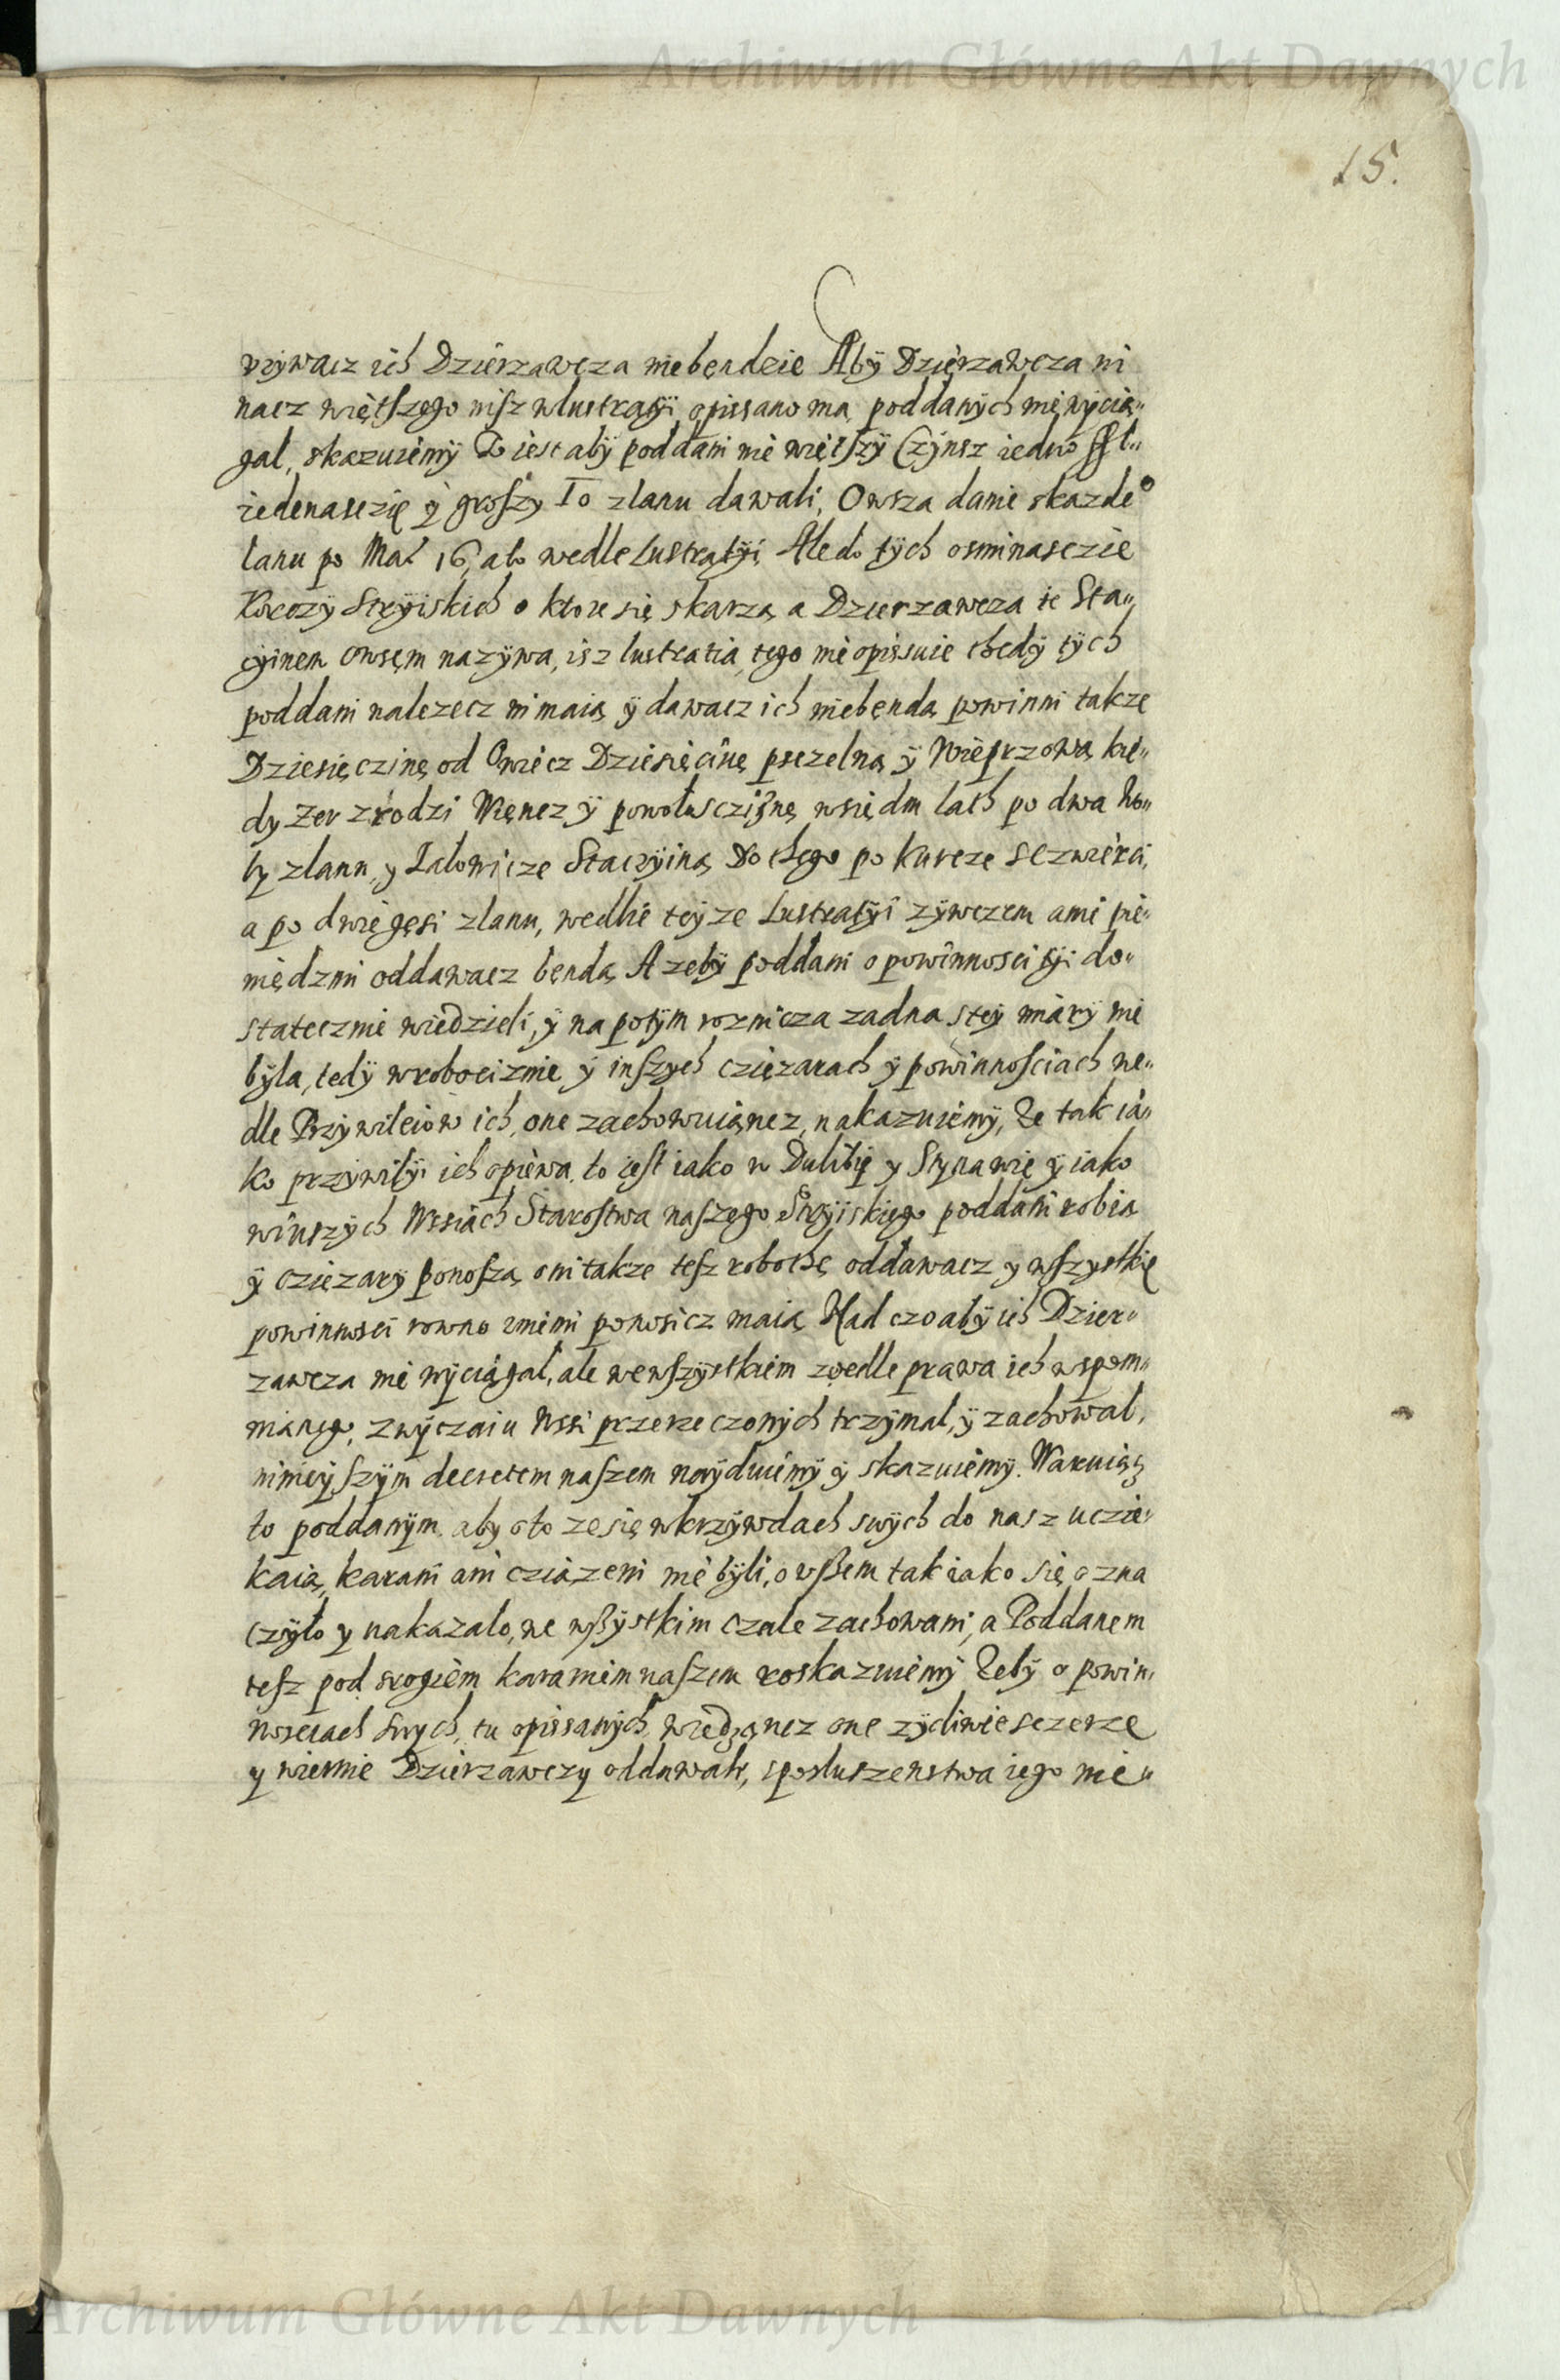 Archiwum Główne Akt Dawnych
15.
vzÿwacz ich Dzierzawcza niebęndzie Abÿ Dzierzawcza ni
nacz więtszego nisz wlustratÿi opissano ma, poddanÿch nie wÿcią„
gal, skazuiemÿ To iest abÿ poddani nie więtszÿ Czÿnsz iedno ffl„
iedenasczie ÿ groszy 10 zlanu dawali, Owsza danie skazde°
lanu po Mac 16, abo wedle Lustratÿi Ale do tÿch osminasczie
Korczy Strÿiskich o ktore się skarzą a Dzierzawcza ie Sta„
cÿinem owsem nazÿwa, isz lustratia tego nie opissuie thedÿ tÿch
poddani nalezecz nimaią ÿ dawacz ich niebendą powinni takze
Dziesięczinę od Owiecz Dziesięcinę pszelną ÿ Wieprzową kie„
dy Zer zrodzi Więnczÿ powolusczisnę wsiędm lath po dwa Wo„
ly zlanu, y Ialowicze Stacyiną Do thego po kurcze sczwierci,
a po dwie gęsi zlanu, wedlie teÿze Lustratÿi zÿwczem a nie pie„
niędzmi oddawacz bendą A zebÿ poddani o powinnosci sÿi do„
statecznie wiedzieli, ÿ na potÿm roznicza zadna steÿ miarÿ nie
bÿla, tedÿ wrobociznie ÿ inszych cziezarach ÿ powinnosciach we„
dle Przÿwileiow ich, one zachowuiąncz, nakazuiemÿ, Ze tak ia„
ko przÿwilÿi ich opiewa, to iest iako w Dulibię y Stynawię ÿ iako
winszych Wssiach Starostwa naszego Strÿiskiego poddani robią
ÿ cziezarÿ ponoszą oni takze tesz robothę oddawacz y wszystkię
powinnosci rowno znimi ponosicz maią Nad czo abÿ ich Dzier„
zawcza nie wÿciągal, ale wewszÿstkiem zwedle prawa ich wspom„
nianego, zwÿczaiu Wssi przerzeczonÿch trzÿmal, ÿ zachowal,
ninieÿszÿm decretem naszem naÿduiemÿ ÿ skazuiemÿ. Waruiąc
to poddanÿm, aby oto ze się wkrzÿwdach swÿch do nasz uczie„
kaią, karani ani cziązeni nie bÿli, owszem tak iako się ozna
czylo y nakazalo, we wszÿstkim czale zachowani, a Poddanem
tesz pod srogiem karaniem naszem roskazuiemÿ Zebÿ o powin„
nosciach swych, tu opissanÿch wiedząncz one zÿcliwie sczerze
y wiernie Dzierzawczy oddawali, sposluszenstwa iego nie„
Archiwum Główne Akt Dawnych